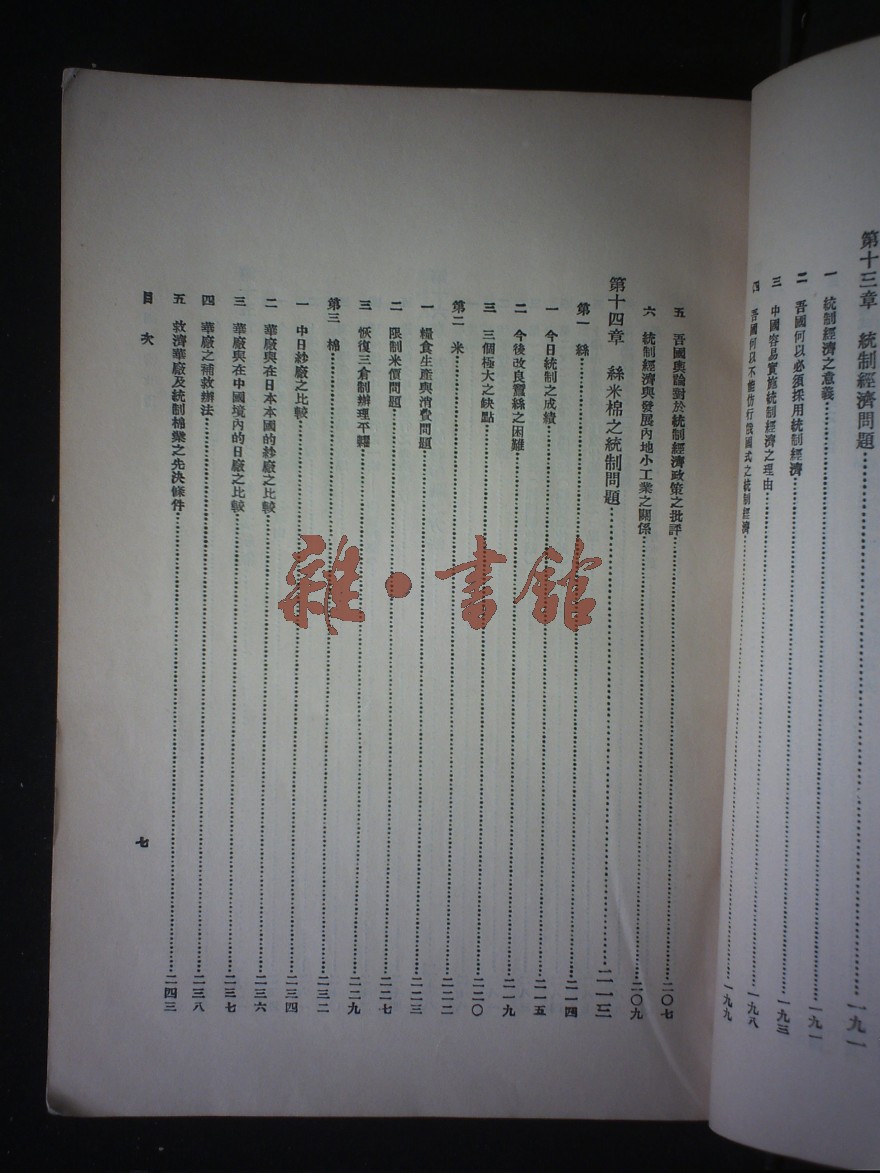 第十三章 統制經濟問題……一九一
一 統制經濟之意義……一九一
二 吾國何以必須採用統制經濟……一九三
三 中國容易實施統制經濟之理由……一九八
四 吾國何以不能仿行俄國式之統制經濟……一九九
五 吾國輿論對於統制經濟政策之批評……二〇七
六 統制經濟與發展內地小工業之關係……二〇九
第十四章 絲米棉之統制問題……二一三
第一 絲……二一四
一 今日統制之成績……二一五
二 今後改良蠶絲之困難……二一九
三 三個極大之缺點……二二〇
第二 米……二二二
一 糧食生產與消費問題……二二三
二 限制米價問題……二二七
三 恢復三倉制辦理平糶……二二九
第三 棉……二三二
一 中日紗廠之比較……二三四
二 華廠與在日本本國的紗廠之比較……二三六
三 華廠與在中國境內的日廠之比較……二三七
四 華廠之補救辦法……二三八
五 救濟華廠及統制棉業之先決條件……二四三
目次
七
雜·書館